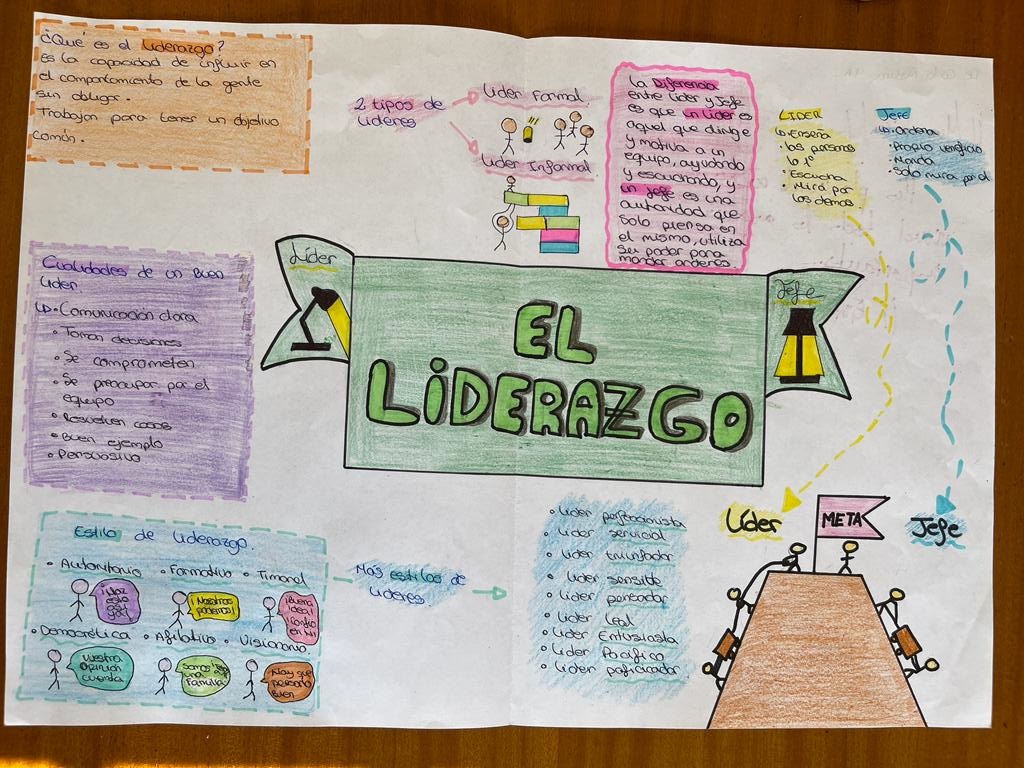 ¿Qué es el Liderazgo?
Es la capacidad de influir en
el comportamiento de la gente
sin obligar.
Trabajan para tener un objetivo
común.
2 tipos de
líderes
Líder Formal
Líder Informal
La Diferencia
entre líder y Jefe
es que un líder es
aquel que dirige
y motiva a un
equipo, ayudando
y escuchando, y
un jefe es una
autoridad que
solo piensa en
el mismo, utiliza
su poder para
mandar ordenes.
LIDER
Enseña
• las personas
lo 1º
• Escucha
• Mira por
los demas.
Jefe
Ordena
• Propio beneficio
• Manda
• Solo mira por el
Cualidades de un Buen
Líder
• Comunicación clara
• Toman decisiones
• Se comprometen
• Se preocupan por el
equipo
• Resuelven cosas
• Buen ejemplo
• Persuasivo
Líder
EL
LiDERAZGO
Jefe
Estilo de Liderazgo.
• Autoritario
• Formativo
• Timonel
¡Haz
esto
¡Nosotros
podemos!
¡Buena
idea!
• Democrática
• Afiliativo
• Visionario
Vuestra
Opinión
cuenta
Somos
una
Familia
Hay que
pensarlo
Bien
Más estilos de
líderes
• Líder perfeccionista
• Líder servicial
• Líder triunfador
• Líder sensible
• Líder pensador
• Líder Leal
• Líder Entusiasta
• Líder Pacífico
• Líder pacificador
Líder
META
Jefe